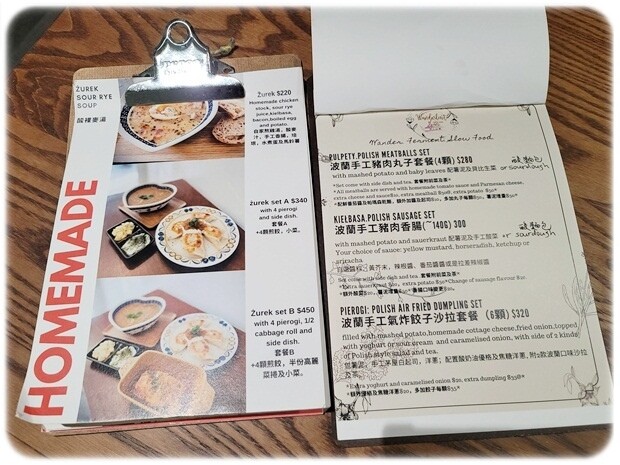 HOMEMADE
ŻUREK
SOUR RYE
SOUP
酸裸麥湯
Żurek $220
Homemade chicken
stock, sour rye
juice,kielbasa,
bacon,boiled egg
and potato.
żurek set A $340
with 4 pierogi
and side dish.
套餐A
+4顆煎餃, 小菜。
Żurek set B $450
with 4 pierogi, 1/2
cabbage roll and
side dish.
套餐B
+4顆煎餃, 半份高麗
菜捲及小菜。
Wander Ferment Slow Food
PULPETY,POLISH MEATBALLS SET
波蘭手工豬肉丸子套餐(4顆) $280
with mashed potato and baby leaves 配薯泥及貝比生菜
酸麵包
or sourdough
*Set come with side dish and tea. 套餐附前菜及茶*
*All meatballs are served with homemade tomato sauce and Parmesan cheese,
KIEŁBASA,POLISH SAUSAGE SET
波蘭手工豬肉香腸(~140G) 300
with mashed potato and sauerkraut 配薯泥及手工酸菜
酸麵包
or sourdough
Your choice of sauce: yellow mustard, horseradish, ketchup or
sriracha
*Set come with side dish and tea. 套餐附前菜及茶*
PIEROGI: POLISH AIR FRIED DUMPLING SET
波蘭手工氣炸餃子沙拉套餐 (6顆) $320
filled with mashed potato,homemade cottage cheese,fried onion,topped
with yoghurt or sour cream and caramelised onion, with side of 2 kinds
of Polish style salad and tea.
*Extra yoghurt and caramelised onion $20, extra dumpling $35@*